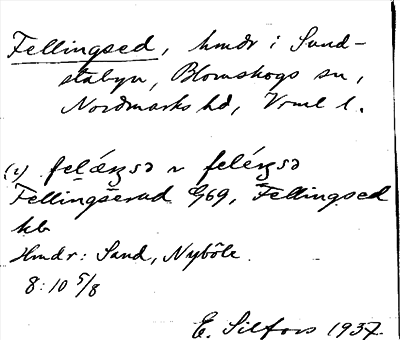 Fellingsed, hmdr i Sund-
stabyn, Blomskogs sn,
Nordmarks hd, Vrml l.
(i) felæŋsə ~ feléŋsə
Fellingserud Eg69, Fellingsed
kb
Hmdr: Sand, Nyböle.
8:10 5/8
E. Silfors 1937.